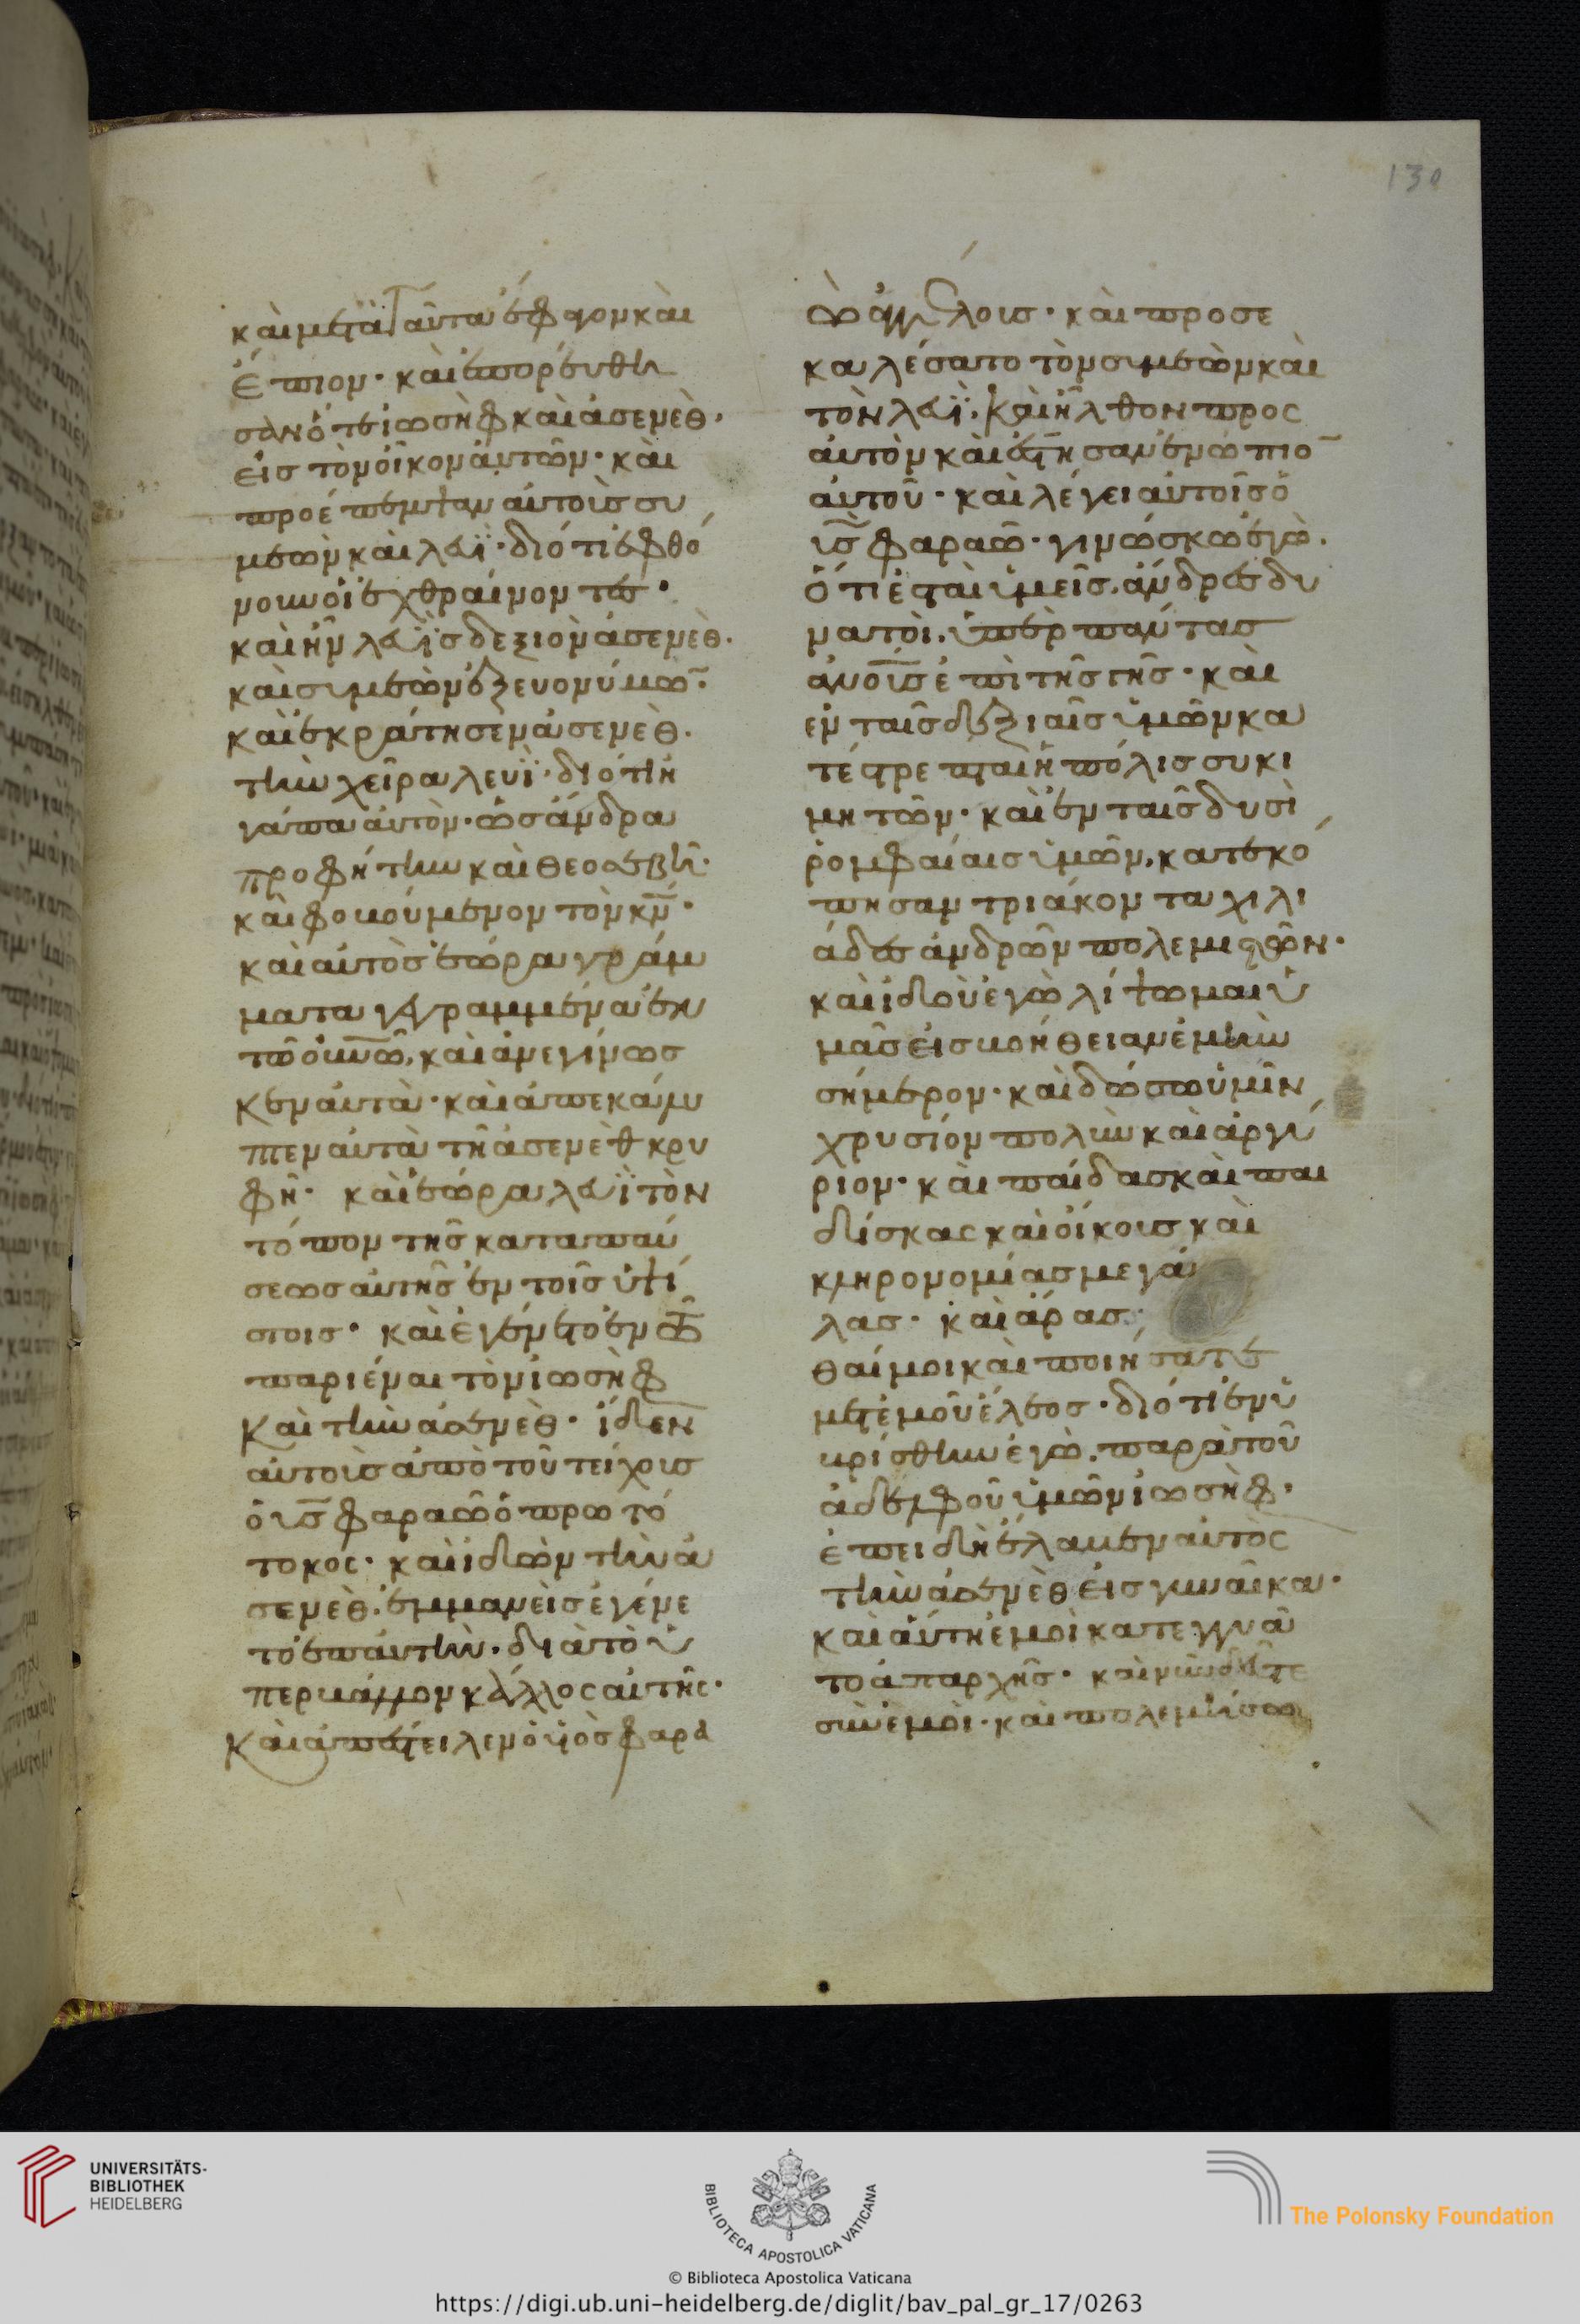 130
καὶ μετὰ ταῦτα ἔφαγον καὶ
ἔπιον· καὶ ἐπορεύθη
σαν ὅ τε ἰωσὴφ καὶ ἀσενὲθ·
εἰς τὸν οἶκον αὐτῶν· καὶ
προέπεμψαν αὐτοὺς συ
μεὼν καὶ λευΐ· διότι ἐφθό
νουν οἱ ἐχθραίνοντες·
καὶ ἦν λευῒς δεξιὸν ἀσενὲθ·
καὶ συμεὼν ἐξευονύμω̄·
καὶ ἐκράτησεν ἀσενὲθ·
τὴν χεῖρα λευΐ· διότι ἠ
γάπα αὐτὸν· ὡς ἄνδρα
προφήτην καὶ θεοσεβῆ·
καὶ φοβούμενον τὸν κ̄ν̄·
καὶ αὐτὸς ἑώρα γράμ
ματα γεγραμμένα ἐν
τῶ ὀυνῶ, καὶ ἀνεγίνωσ
κεν αὐτὰ· καὶ ἀπεκάλυ
πτεν αὐτὰ τῆ ἀσενὲθ κρυ
φῆ· καὶ ἑώρα λευῒ τὸν
τόπον τῆς καταπαύ
σεως αὐτῆς ἐν τοῖς ὑψί
στοις· καὶ ἐγένετο ἐν τῶ
παριέναι τὸν ἰωσὴφ
καὶ τὴν ἀσενὲθ· ἴδεν
αὐτοὺς ἀπὸ τοῦ τείχους
ὁ ῡς̄ φαραὼ ὁ πρωτό
τοκος· καὶ ἰδὼν τὴν ἀ
σενὲθ· ἐμμανεὶς ἐγένε
το ἐπ' αὐτὴν· διὰ τὸ ὑ
περβάλλον κάλλος αὐτῆς·
καὶ ἀπέστειλεν ὁ υἱὸς φαρα
ὼ ἀγγέλους· καὶ προσε
καλέσατο τὸν συμεὼν καὶ
τὸν λευΐ· καὶ ἦλθον πρὸς
αὐτὸν καὶ ἔστησαν ἐνώπιο̄
αὐτοῦ· καὶ λέγει αὐτοῖς ὁ
ῡς̄ φαραὼ· γινώσκω ἐγὼ·
ὅτι ἐσταὶ ὑμεῖς· ἄνδρες δυ
νατοὶ· ὑπὲρ πάντας
ἀν̄ο̄ῡς̄ ἐπὶ τῆς γῆς· καὶ
ἐν ταῖς δεξιαῖς ὑμῶν κα
τέστρεπται ἡ πόλις συκι
μητῶν· καὶ ἐν ταῖς δυσὶ
ῥομφαίαις ὑμῶν, κατεκό
πησαν τριάκοντα χιλι
άδες ἀνδρῶν πολεμιστῶν·
καὶ ἰδοὺ ἐγὼ λίψωμαι ὑ
μᾶς εἰς βοήθειαν ἐμὴν
σήμερον· καὶ δώσω ὑμῖν
χρυσίον πολὺν καὶ ἀργύ
ριον· καὶ παῖδας καὶ παι
δίσκας καὶ οἴκους καὶ
κληρονομίας μεγά
λας· καὶ ἄρασ
θαί μοι καὶ ποιήσατε
μετ' ἐμοῦ ἔλεος· διότι ἐνυ
βρίσθην ἐγὼ· παρὰ τοῦ
ἀδελφοῦ ὑμῶν ἰωσὴφ·
ἐπειδὴ ἔλαβεν αὐτὸς
τὴν ἀσενὲθ εἰς γυναῖκα·
καὶ αὕτη ἐμοὶ κατεγγυᾶ
το ἀπαρχῆς· καὶ νῦν δεῦτε
σὺν ἐμοὶ· καὶ πολεμήσω
UNIVERSITÄTS-
BIBLIOTHEK
HEIDELBERG
BIBLIOTECA APOSTOLICA VATICANA
The Polonsky Foundation
© Biblioteca Apostolica Vaticana
https://digi.ub.uni-heidelberg.de/diglit/bav_pal_gr_17/0263